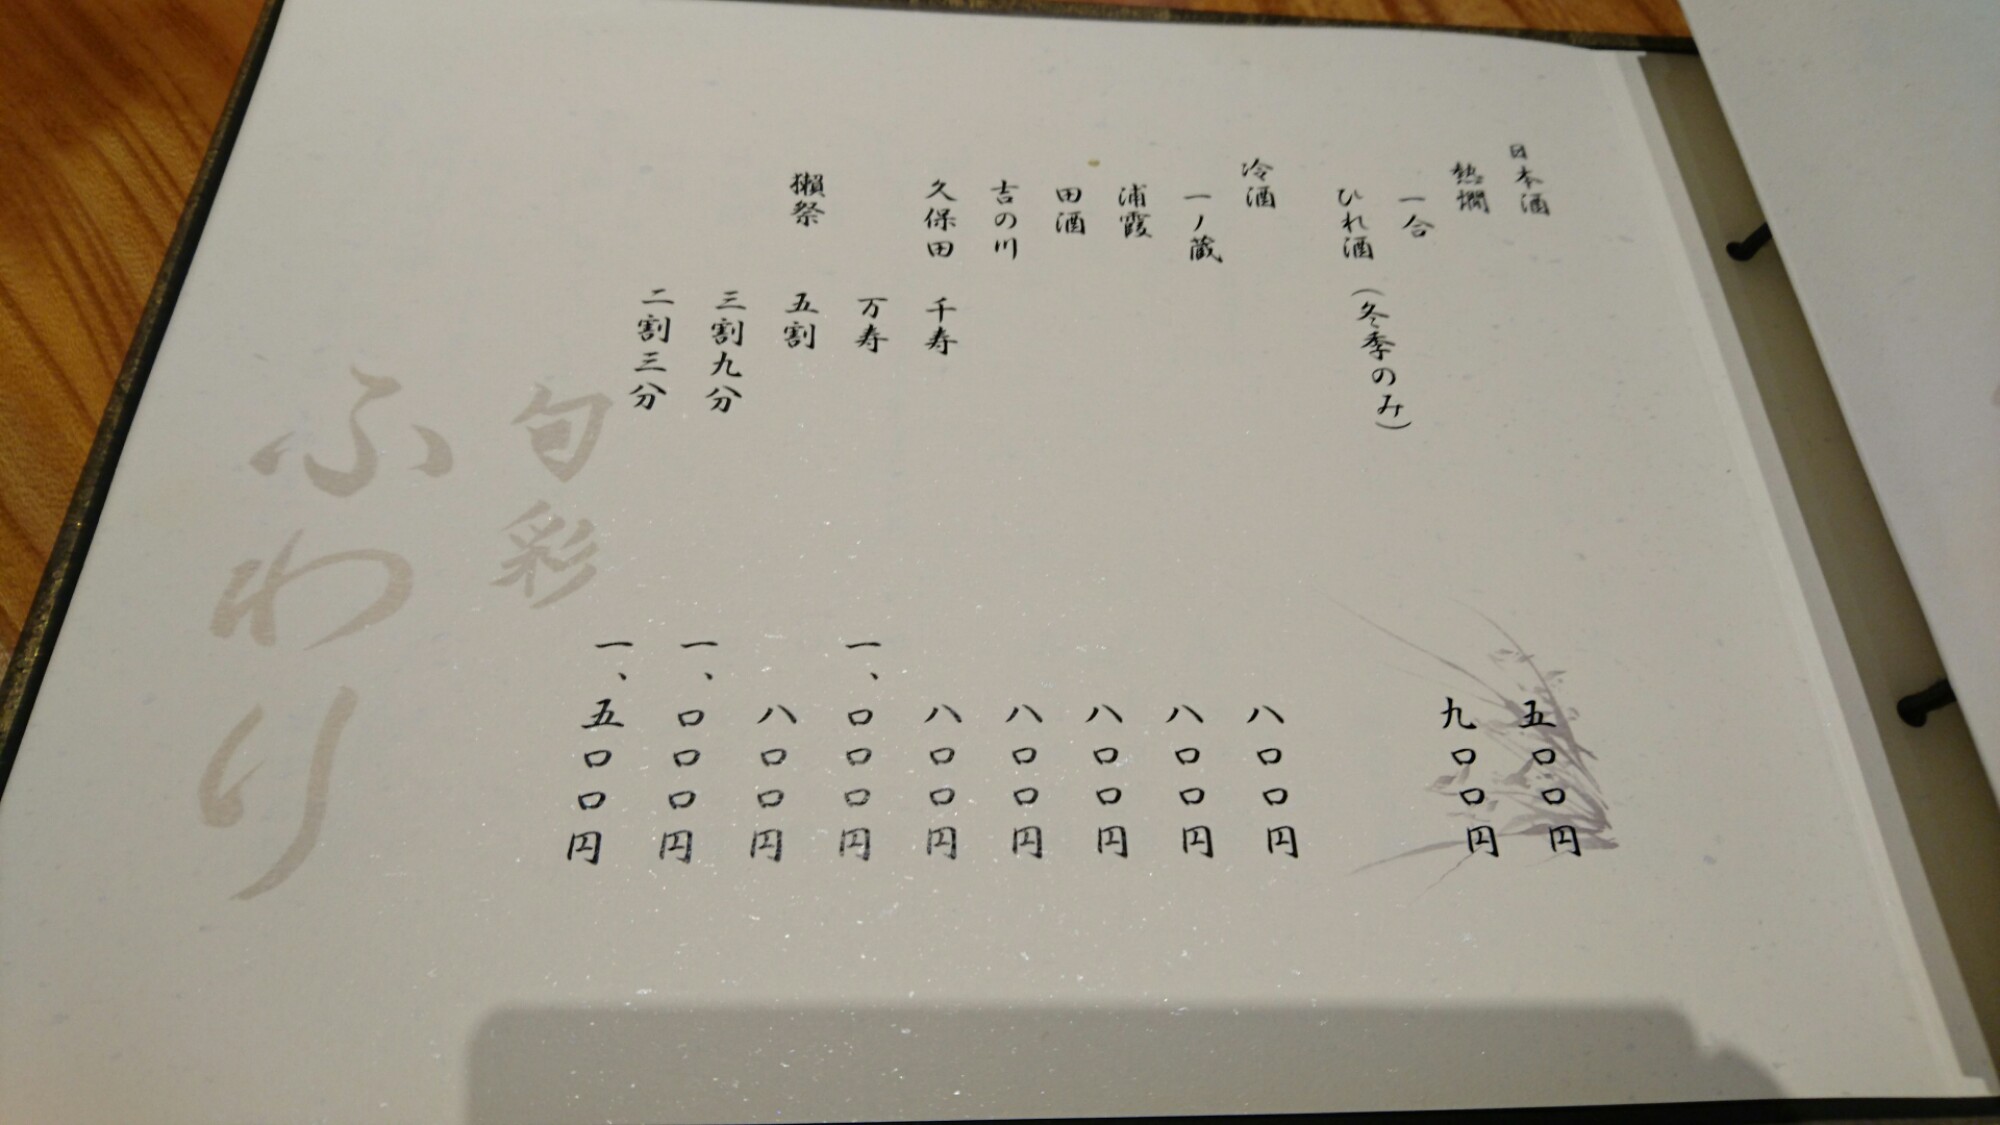 日本酒
熱燗
一合 五〇〇円
ひれ酒（冬季のみ） 九〇〇円
冷酒
一ノ蔵 八〇〇円
浦霞 八〇〇円
田酒 八〇〇円
吉の川 八〇〇円
久保田 千寿 八〇〇円
万寿 一、〇〇〇円
獺祭 五割 八〇〇円
三割九分 一、〇〇〇円
二割三分 一、五〇〇円
旬彩
ふわり